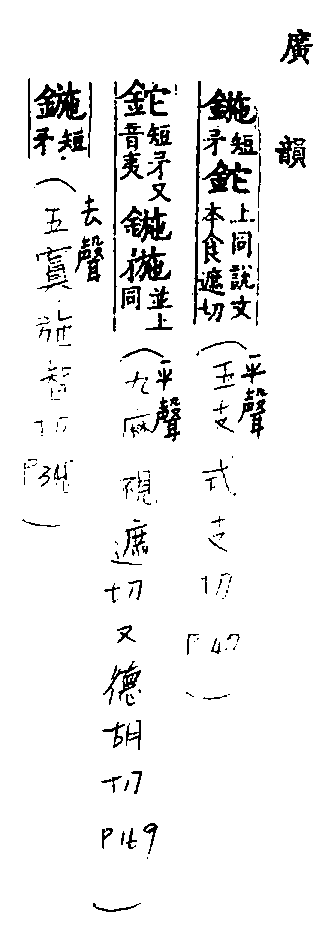 廣韻
鍦短矛鉈上同說文本食遮切(平聲五支式支切P47)
鉈短矛又音夷鍦𥍸並上同(平聲九麻視遮切又德胡切P169)
鍦短矛(去聲五寘施智切P348)